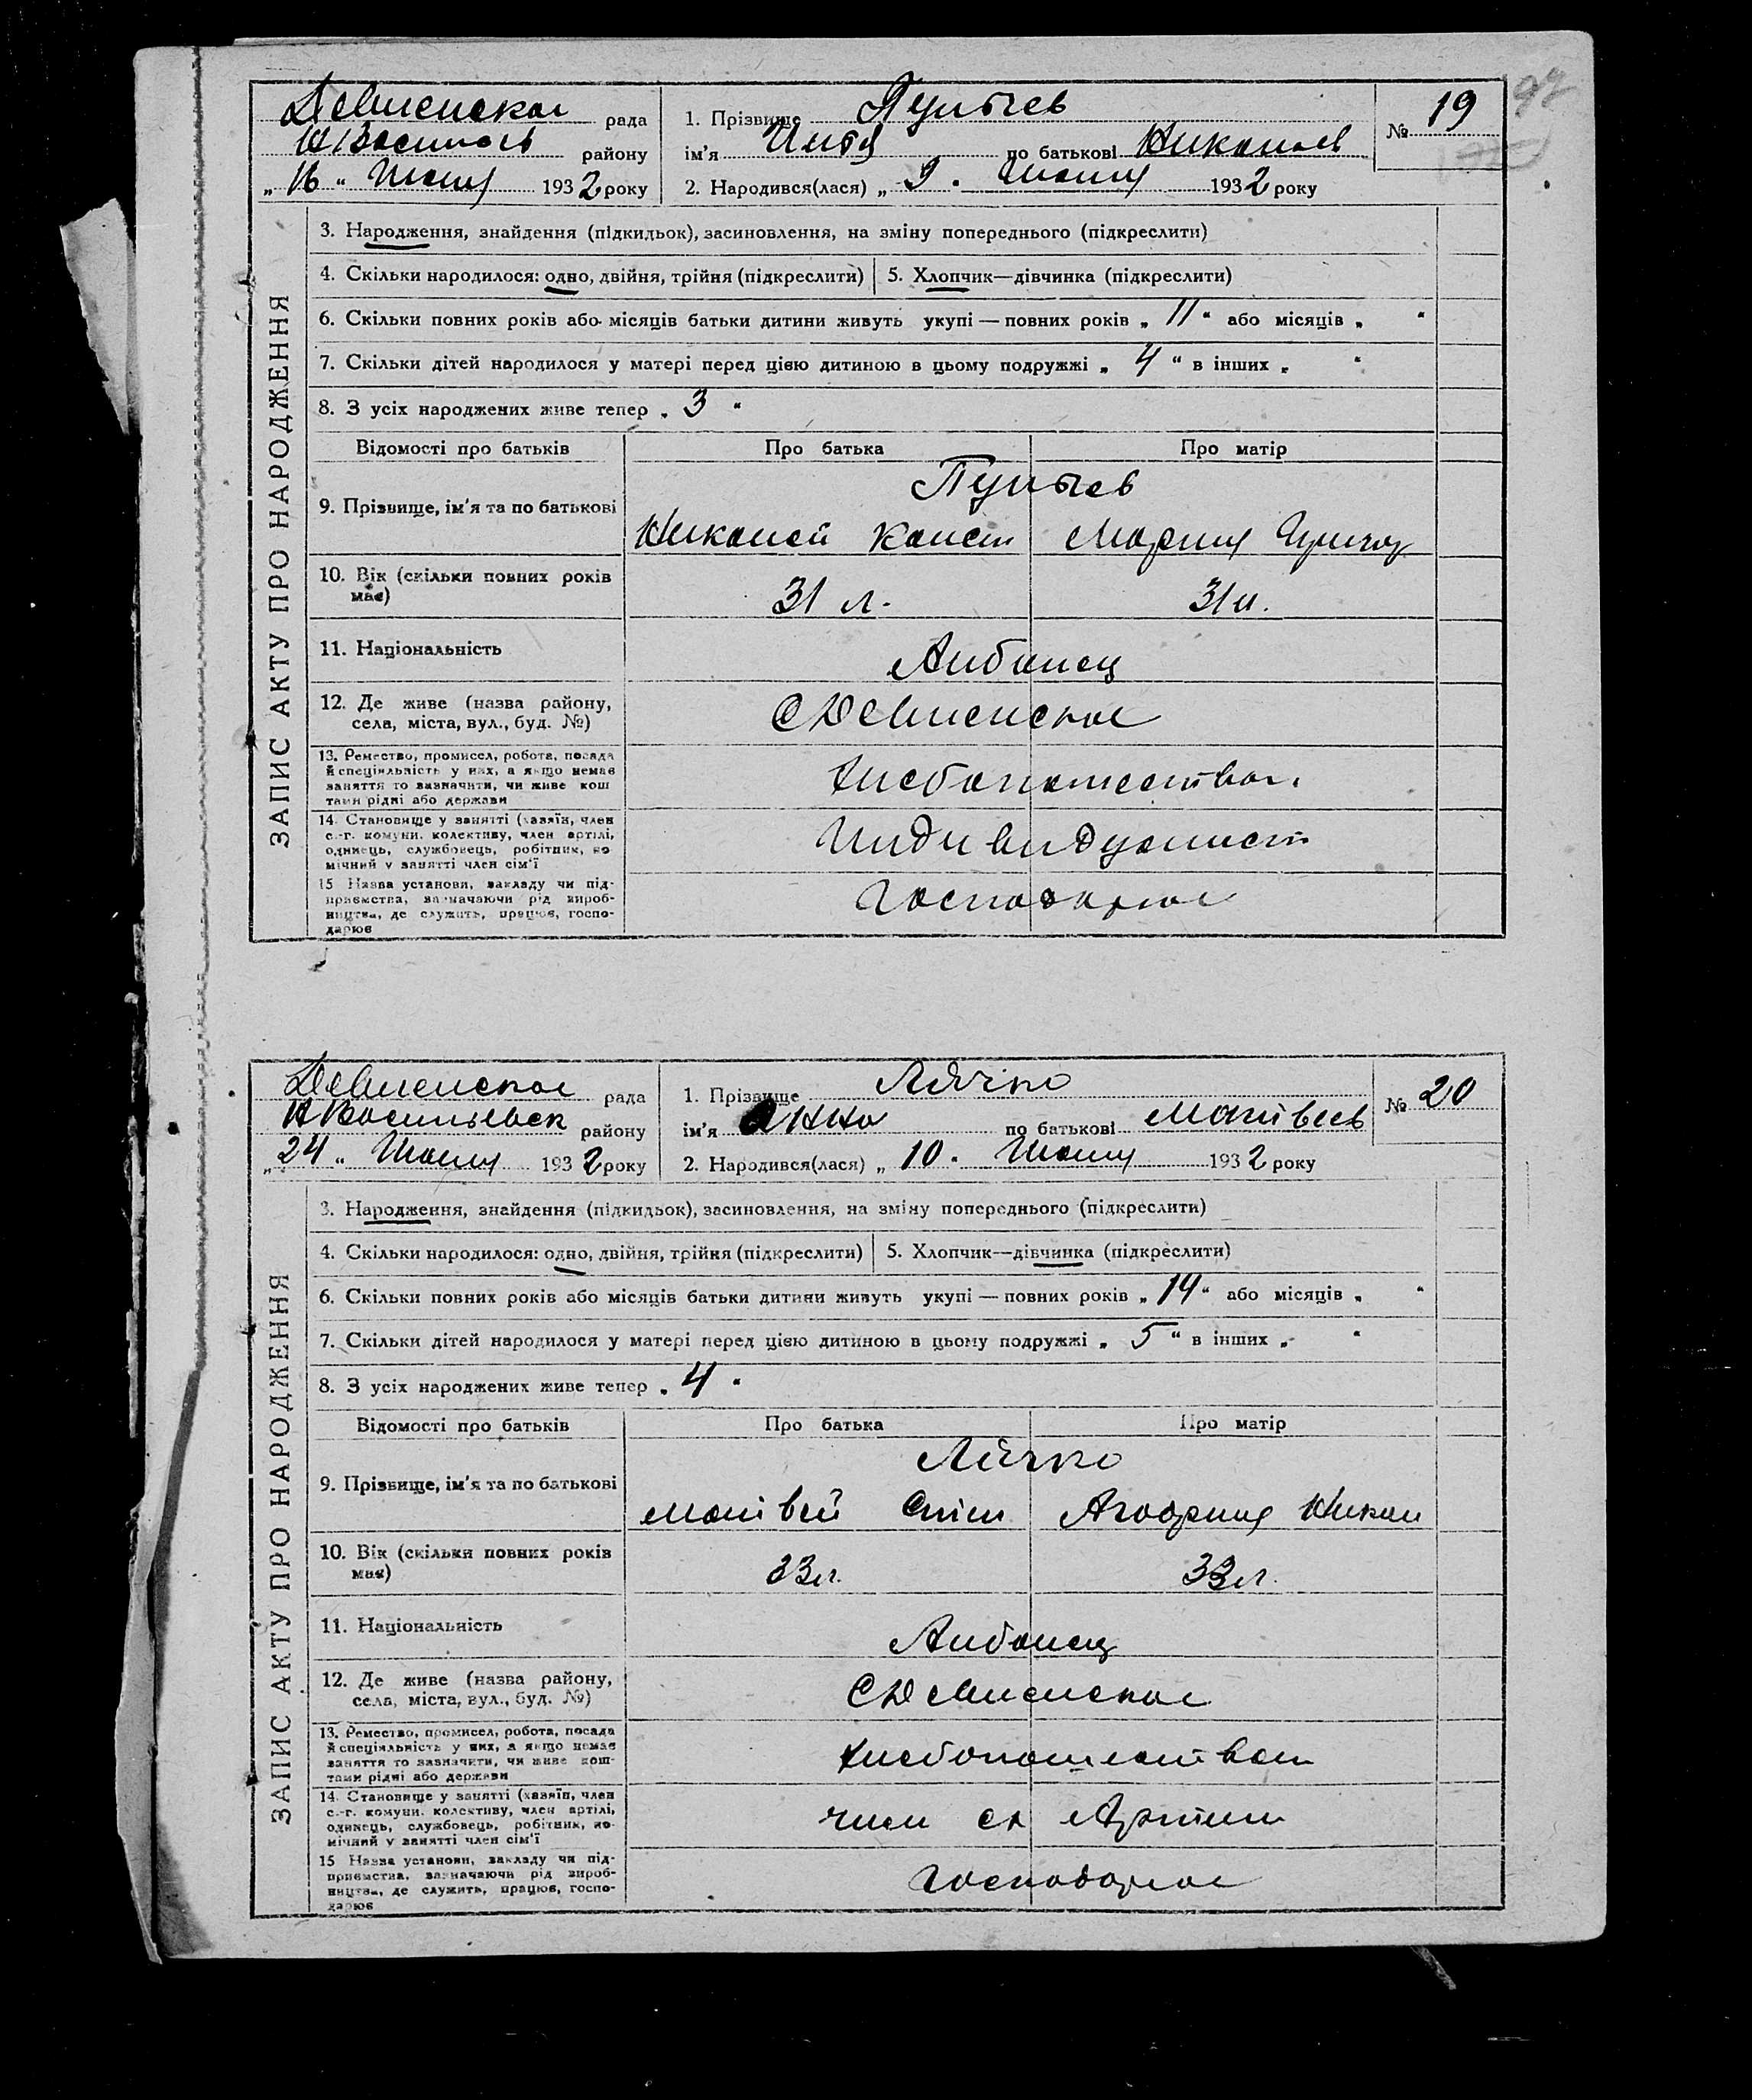 Девненская рада
Н Василев району
„ 16 “ Июня 1932 року
1. Прізвище Пультев
ім'я Илья по батькові Николаев
2. Народився(лася) „ 9 “ Июня 1932 року
№ 19
ЗАПИС АКТУ ПРО НАРОДЖЕННЯ
3. Народження, знайдення (підкидьок), засиновлення, на зміну попереднього (підкреслити)
4. Скільки народилося: одно, двійня, трійня (підкреслити)
5. Хлопчик—дівчинка (підкреслити)
6. Скільки повних років або місяців батьки дитини живуть укупі — повних років „ 11 “ або місяців „ “
7. Скільки дітей народилося у матері перед цією дитиною в цьому подружжі „ 4 “ в інших „ “
8. З усіх народжених живе тепер „ 3 “
Відомості про батьків Про батька Про матір
9. Прізвище, ім'я та по батькові
Пультев
Николай Конст Мария Григор
10. Вік (скільки повних років
має)
31 л. 31 л.
11. Національність
Албанец
12. Де живе (назва району,
села, міста, вул., буд. №)
С Девненское
13. Ремество, промисел, робота, посада
й спеціяльність у них, а якщо немає
заняття то зазначити, чи живе кош
тами рідні або держави
Хлебопашество
14. Становище у занятті (хазяїн, член
с.-г. комуни, колективу, член артілі,
одинець, службовець, робітник, по
мічний у занятті член сім'ї
Индивидуалист
15 Назва установи, закладу чи під-
приємства, зазначаючи рід вироб-
ництва, де служить, працює, госпо-
дарює
Господарює
Девненская рада
Н Васильевск району
„ 24 “ Июня 1932 року
1. Прізвище Лячко
ім'я Анна по батькові Матвеев
2. Народився(лася) „ 10 “ Июня 1932 року
№ 20
ЗАПИС АКТУ ПРО НАРОДЖЕННЯ
3. Народження, знайдення (підкидьок), засиновлення, на зміну попереднього (підкреслити)
4. Скільки народилося: одно, двійня, трійня (підкреслити)
5. Хлопчик—дівчинка (підкреслити)
6. Скільки повних років або місяців батьки дитини живуть укупі — повних років „ 14 “ або місяців „ “
7. Скільки дітей народилося у матері перед цією дитиною в цьому подружжі „ 5 “ в інших „ “
8. З усіх народжених живе тепер „ 4 “
Відомості про батьків Про батька Про матір
9. Прізвище, ім'я та по батькові
Лячко
Матвей Степ Никол
10. Вік (скільки повних років
має)
33 л. 33 л.
11. Національність
Албанец
12. Де живе (назва району,
села, міста, вул., буд. №)
С Девненское
13. Ремество, промисел, робота, посада
й спеціяльність у них, а якщо немає
заняття то зазначити, чи живе кош-
тами рідні або держави
Хлебопашеством
14. Становище у занятті (хазяїн, член
с.-г. комуни, колективу, член артілі,
одинець, службовець, робітник, по-
мічний у занятті член сім'ї
член сх Артели
15 Назва установи, закладу чи під-
приємства, зазначаючи рід вироб-
ництва, де служить, працює, госпо-
дарює
Господарює